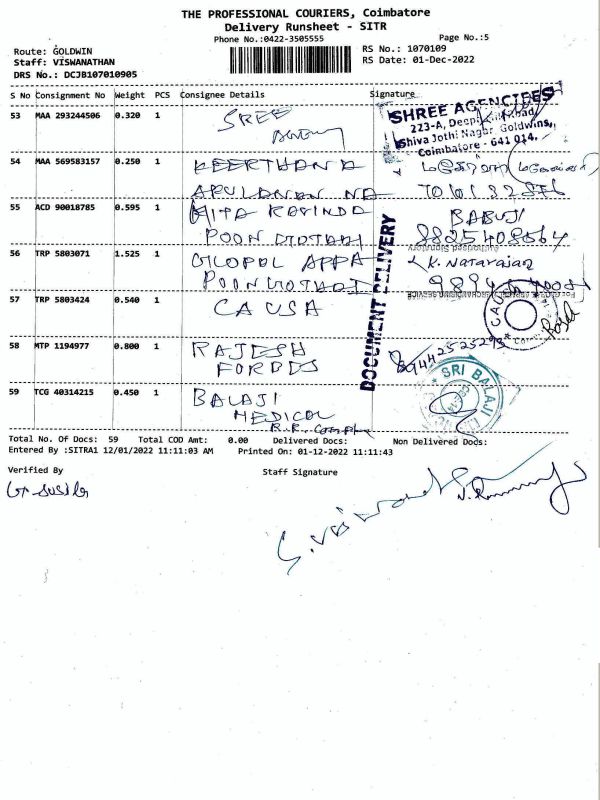 THE PROFESSIONAL COURIERS, Coimbatore
Delivery Runsheet - SITR
Phone No.:0422-3505555
Page No.:5
Route: GOLDWIN
RS No.: 1070109
Staff: VISWANATHAN
RS Date: 01-Dec-2022
DRS No.: DCJB107010905
S No Consignment No Weight PCS Consignee Details Signature
53 MAA 293244506 0.320 1 SREE
AGENCY
SHREE AGENCIES
223-A, Deepam
Shiva Jothi Nagar, Goldwins,
Coimbatore - 641 014.
54 MAA 569583157 0.250 1 KEERTHANA
ARULANAN NA
55 ACD 90018785 0.595 1 KITA RAVINDA BABUJI
POON 8825408564
Authorised Signatory
56 TRP 5803071 1.525 1 APPA K. Natarajan
57 TRP 5803424 0.540 1 CAUSA
DOCUMENT DELIVERY
58 MTP 1194977 0.800 1 RAJESH 9442525293
59 TCG 40314215 0.450 1 BALAJI
MEDICAL
SRI BALAJI
Total No. Of Docs: 59 Total COD Amt: 0.00 Delivered Docs: Non Delivered Docs:
Entered By :SITRA1 12/01/2022 11:11:03 AM Printed On: 01-12-2022 11:11:43
Verified By Staff Signature